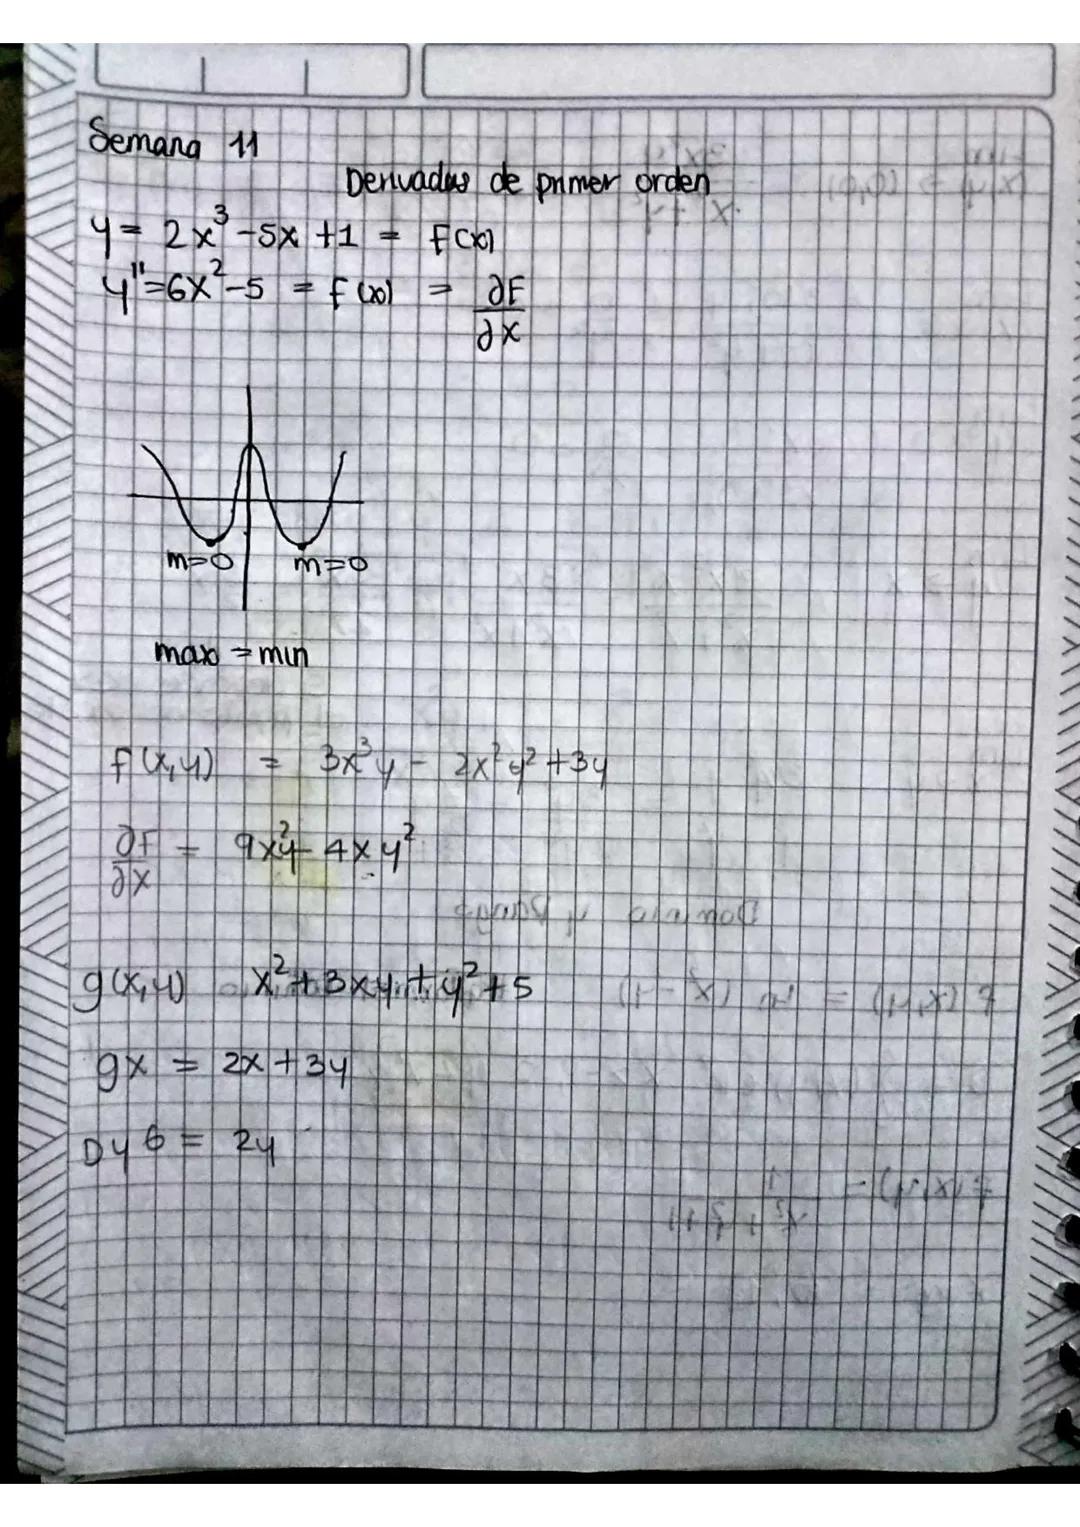 Semana 11
Derivadas de primer orden
y = 2x³ - 5x + 1 = F(x)
y'' = 6x² - 5 = f(x) = ∂F/∂x
m=0 m=0
max = min
f(x,y) = 3x³y - 2x²y² + 3y
∂F/∂x = 9x²y - 4xy²
g(x,y) x² + 3xy + y² + 5
gx = 2x + 3y
Dy6 = 2y